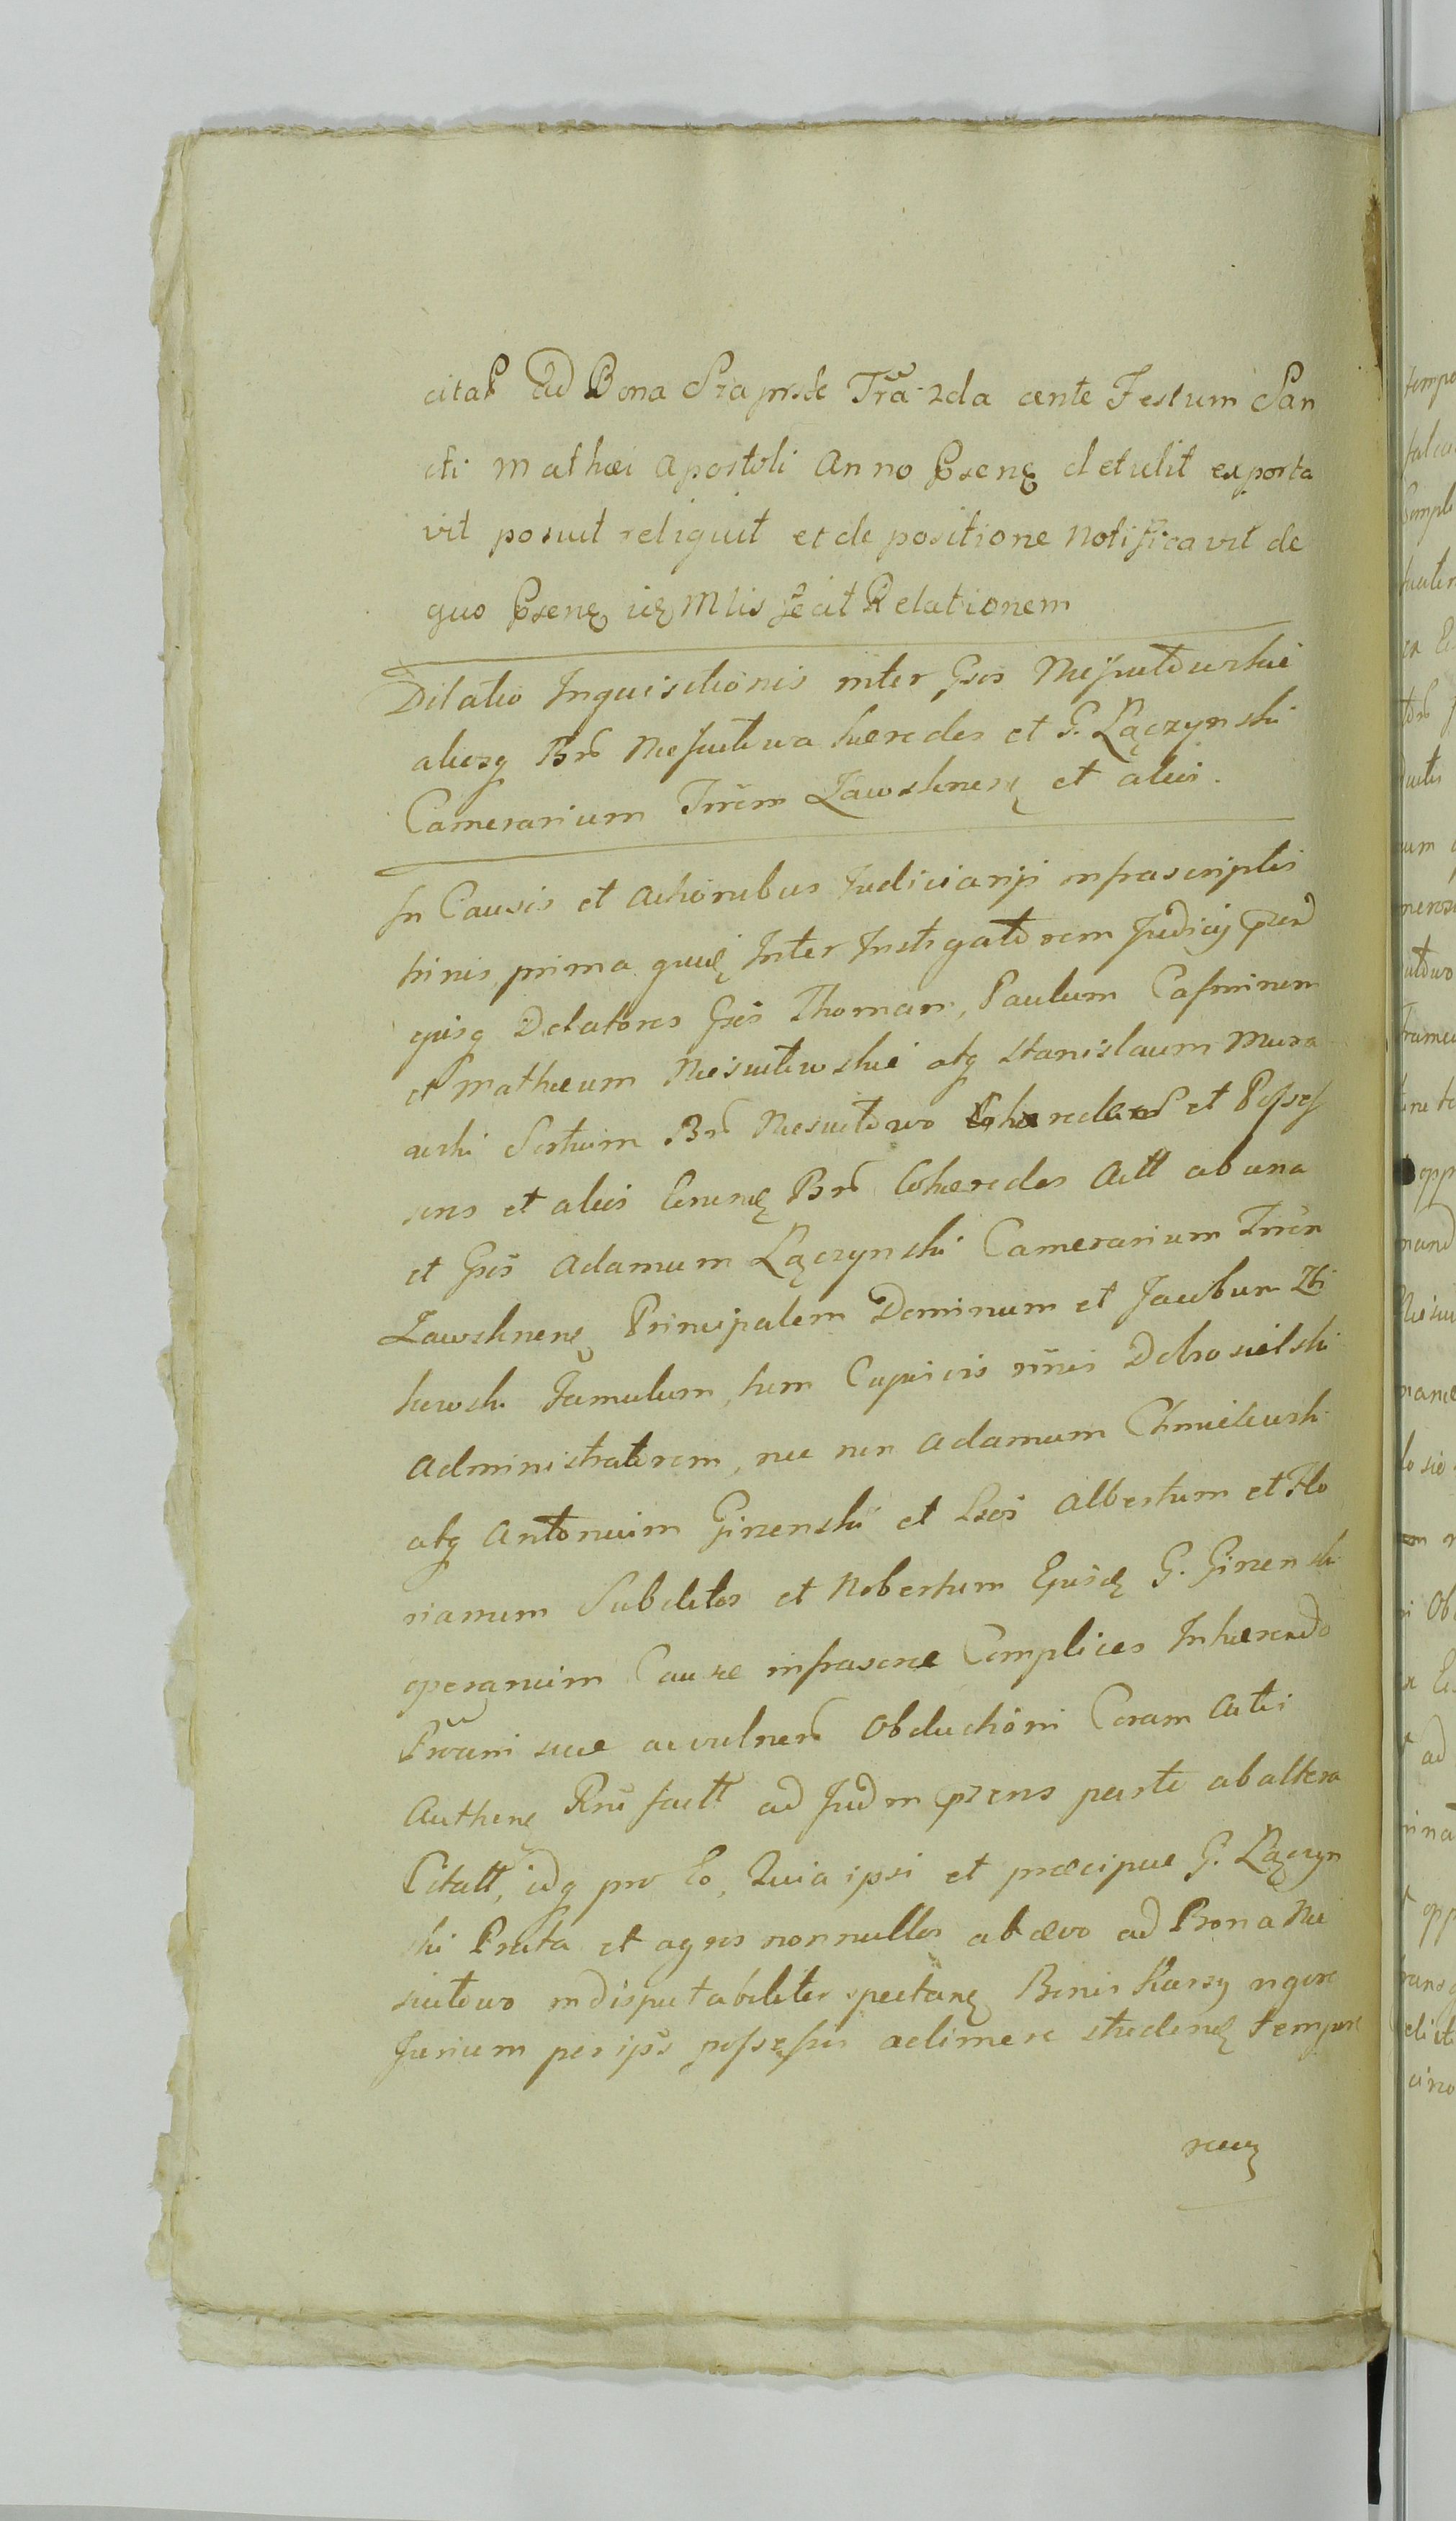 citat Ad Bona Sta prste Tra 2da ante Festum San
cti Mathæi Apostoli Anno Psenę detulit exporta
vit posuit reliquit et de positione notificavit de
quo Psenę iię Mlis fecit Relationem
Dilatio Inquisitionis inter Gsos Niesiułowskie
aliosq Brŏ Niesiułowa hæredes et G. Łączynski
Camerarium Trrem Zawskrnenę et alios.
In Causis et Actionibus Judiciarijs infrascriptis
binis, prima quidę Inter Instigatorem Judicij psend
ejusq Delatores Gsos Thomam, Paulum Casimirum
et Mathæum Niesiułowskie atq Stanislaum Mura
wski Sortium Brŏ Niesiułowo Cohæredes et Posses
sores et alios Eorundę Brŏ Cohæredes Actt ab una
et Gsos Adamum Łączynski Camerarium Trrem
Zawskrnenę Principalem Dominum et Jacobum
Famulum, tum Cujusvis nŏis Dobrosielski
Administratorem, nec non Adamum Chmielewski
atq Antonium Girzenski et Lsos Albertum et Flo
rianum Subditos et Robertum Ejusdę G. Girzenski
operarium Causæ infrascræ Complices Inhærendo
suæ ac vulnerŏ Obductioni Coram Actis
Authenę factt ad Judm psens parte ab altera
Citatt, idq pro Eo, Quia ipsi et præcipue G. Łączyn
ski Prata et agros nonnullos ab ævo ad Bona Nie
siułowo indisputabiliter spectanę Bonis Karsy vigore
Jurium per ipsŏs possessis adimere studendę tempore